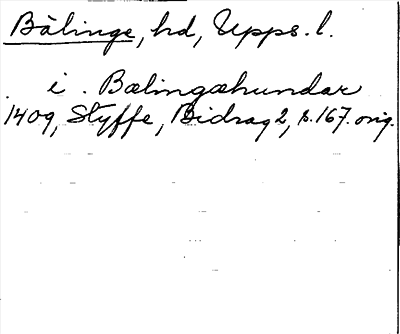 Bälinge, hd, Upps. l.
i. Bælingæhundar
1409, Styffe, Bidrag 2, s. 167. orig.